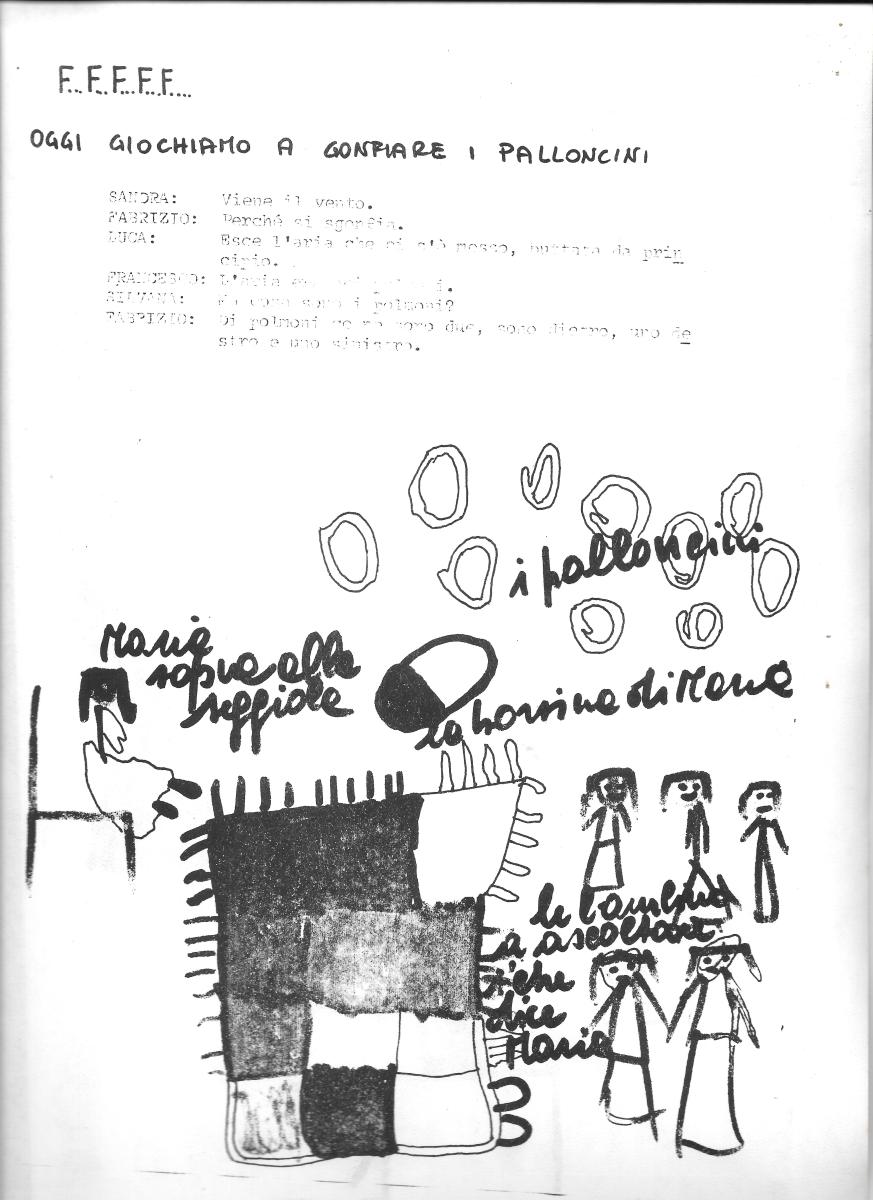 F..F..F..F..F...
OGGI GIOCHIAMO A GONFIARE I PALLONCINI
SANDRA: Viene il vento.
FABRIZIO: Perché si sgonfia.
LUCA: Esce l'aria che ci s'è messo, buttata da prin
cipio.
FRANCESCO: L'aria
SILVANA: sono i polmoni?
FABRIZIO: Di polmoni ce ne sono due, sono dietro, uno de
stro e uno sinistro.
i palloncini
Maria
sopra alla
seggiola
la borsina di Maria
le bambine
a ascoltare
che
dice
Maria